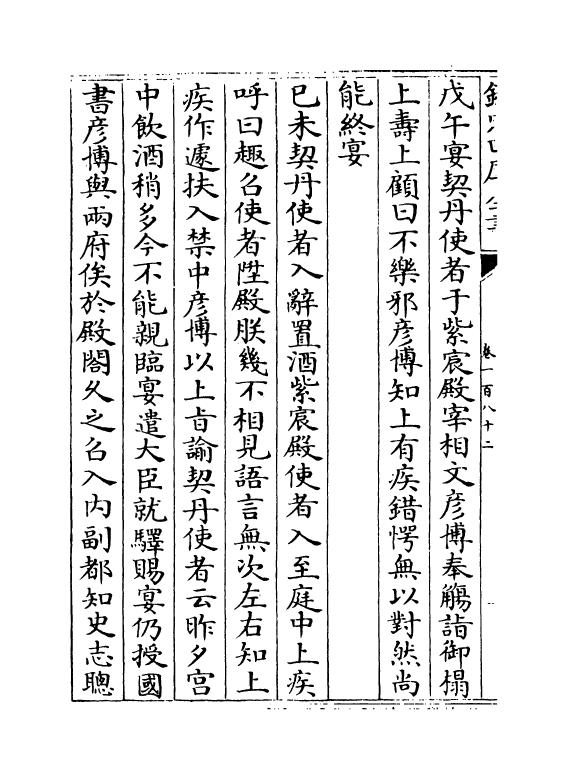 欽定四庫全書
卷一百八十二
戊午宴契丹使者于紫宸殿宰相文彦博奉觴詣御榻
上壽上顧曰不樂邪彦博知上有疾錯愕無以對然尚
能終宴
已未契丹使者入辭置酒紫宸殿使者入至庭中上疾
呼曰趣召使者陞殿朕幾不相見語言無次左右知上
疾作遽扶入禁中彦博以上㫖諭契丹使者云昨夕宫
中飲酒稍多今不能親臨宴遣大臣就驛賜宴仍授國
書彦博與兩府俟於殿閣久之召入内副都知史志聰